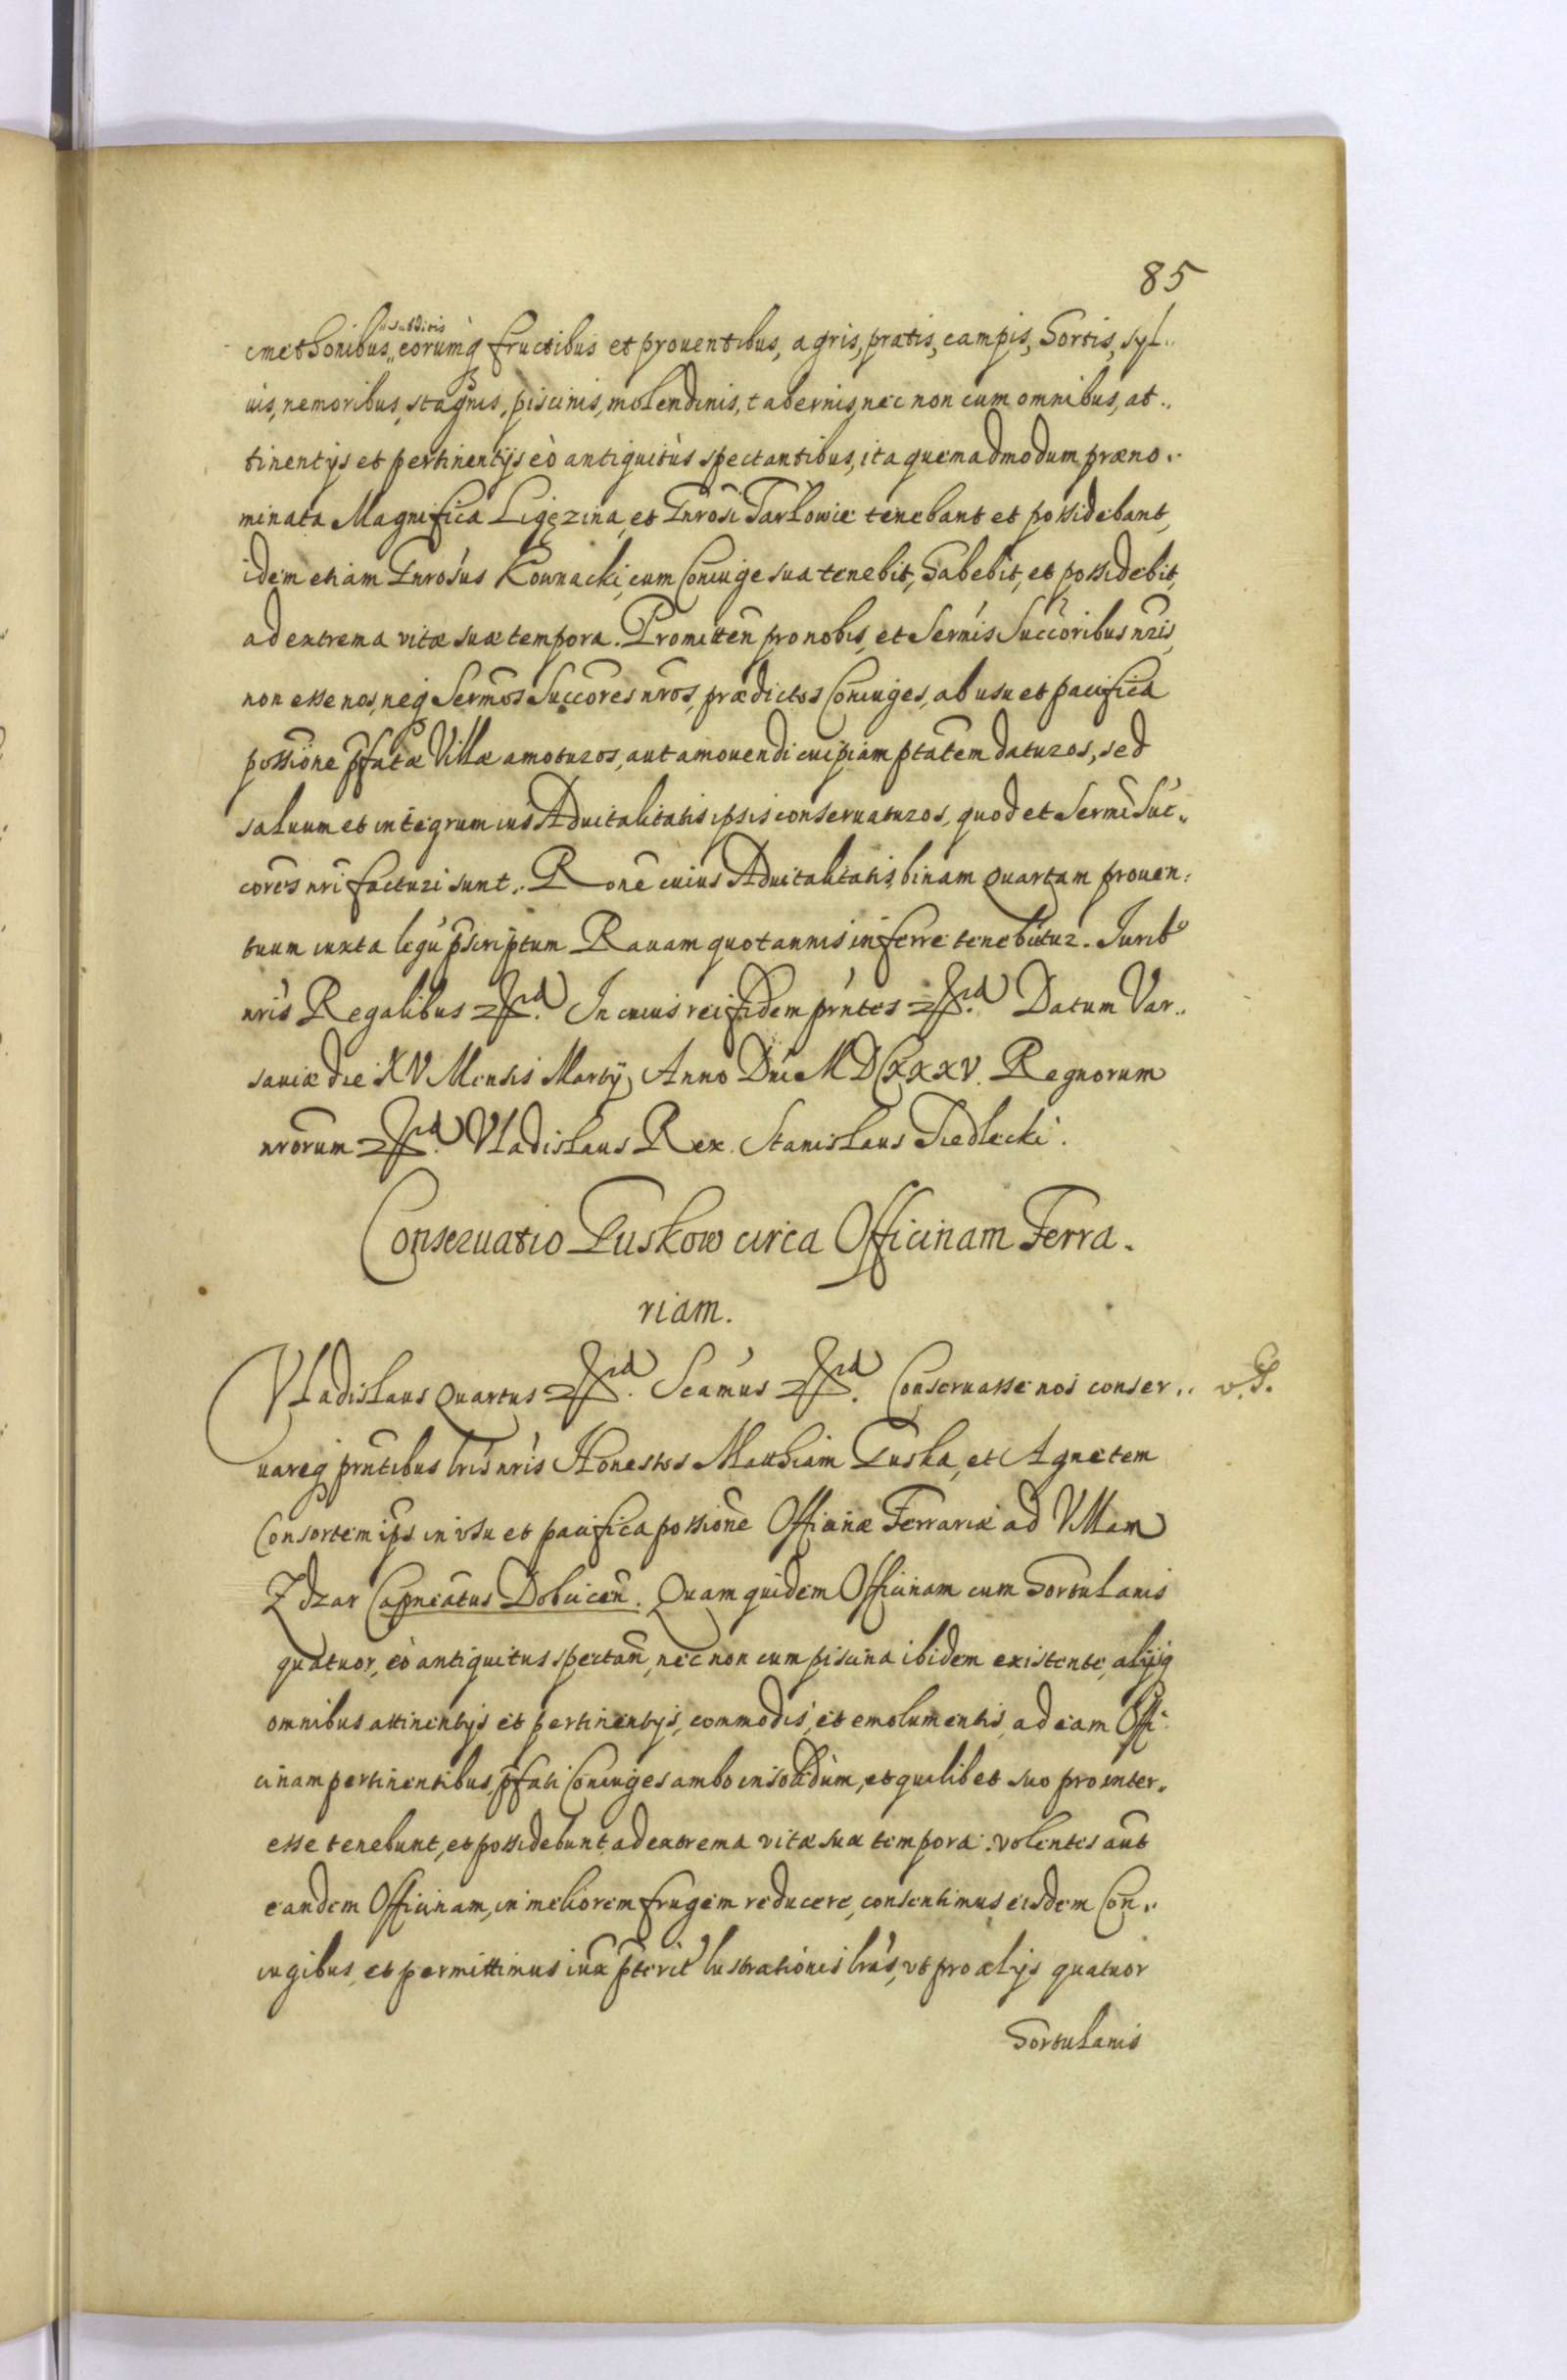 85
subditis
cmethonibus, eorumq̃ fructibus et prouentibus, agris, pratis, campis, hortis, syl„
uis, nemoribus, stagnis, piscinis, molendinis, tabernis, nec non cum omnibus, at„
tinentijs et pertinentijs eò antiquitùs spectantibus, ita quemadmodum præno„
minata Magnifica Ligęzina, et Gnrosi Tarłowie tenebant et possidebant,
idem etiam Gnrosus Kownacki, cum Coniuge sua tenebit, habebit, et possidebit,
ad extrema vitæ suæ tempora. Promitteñ pro nobis, et Sermis Succoribus nris,
non esse nos, neq̃ Sermos Succores nros, prædictos Coniuges, ab usu et pacifica
possione pfatæ Villæ amoturos, aut amouendi cuipiam ptatem daturos, sed
saluum et integrum ius Aduitalitatis ipsis conseruaturos, quod et Sermi Suc„
cores nri facturi sunt. Rone cuius Aduitalitatis, binam quartam prouen:
tuum iuxta legũ pscriptum Rauam quotannis inferre tenebitur. Jurib9
nris Regalibus In cuius rei fidem prntes Datum Var„
sauiæ die XV Mensis Martij, Anno Dni MDCXXXV. Regnorum
nrorum Vladislaus Rex. Stanislaus Siedlecki.
Conseruatio Guskow circa Officinam Ferra.
riam.
Vladislaus Quartus Scamus Conseruasse nos conser„
uareq̃ prntibus lris nris Honestos Matthiam Guska, et Agnetem
Consortem ips in vsu et pacifica possione Officinæ Ferrariæ ad Villam
Zdzar Capneatus Dobcicen. Quam quidem Officinam cum hortulanis
quatuor, eò antiquitus spectañ, nec non cum piscina ibidem existente, alijsq̃
omnibus attinentijs et pertinentijs, commodis, et emolumentis, ad eam Offi:
cinam pertinentibus, pfati Coniuges ambo in solidùm, et quilibet suo pro inter„
esse tenebunt, et possidebunt, ad extrema vitæ suæ tempora. volentes aut
eandem Officinam, in meliorem frugem reducere, consentimus eisdem Con„
iugibus, et permittimus iuxa pterit lustrationis lras, vt pro alijs quatuor
hortulanis